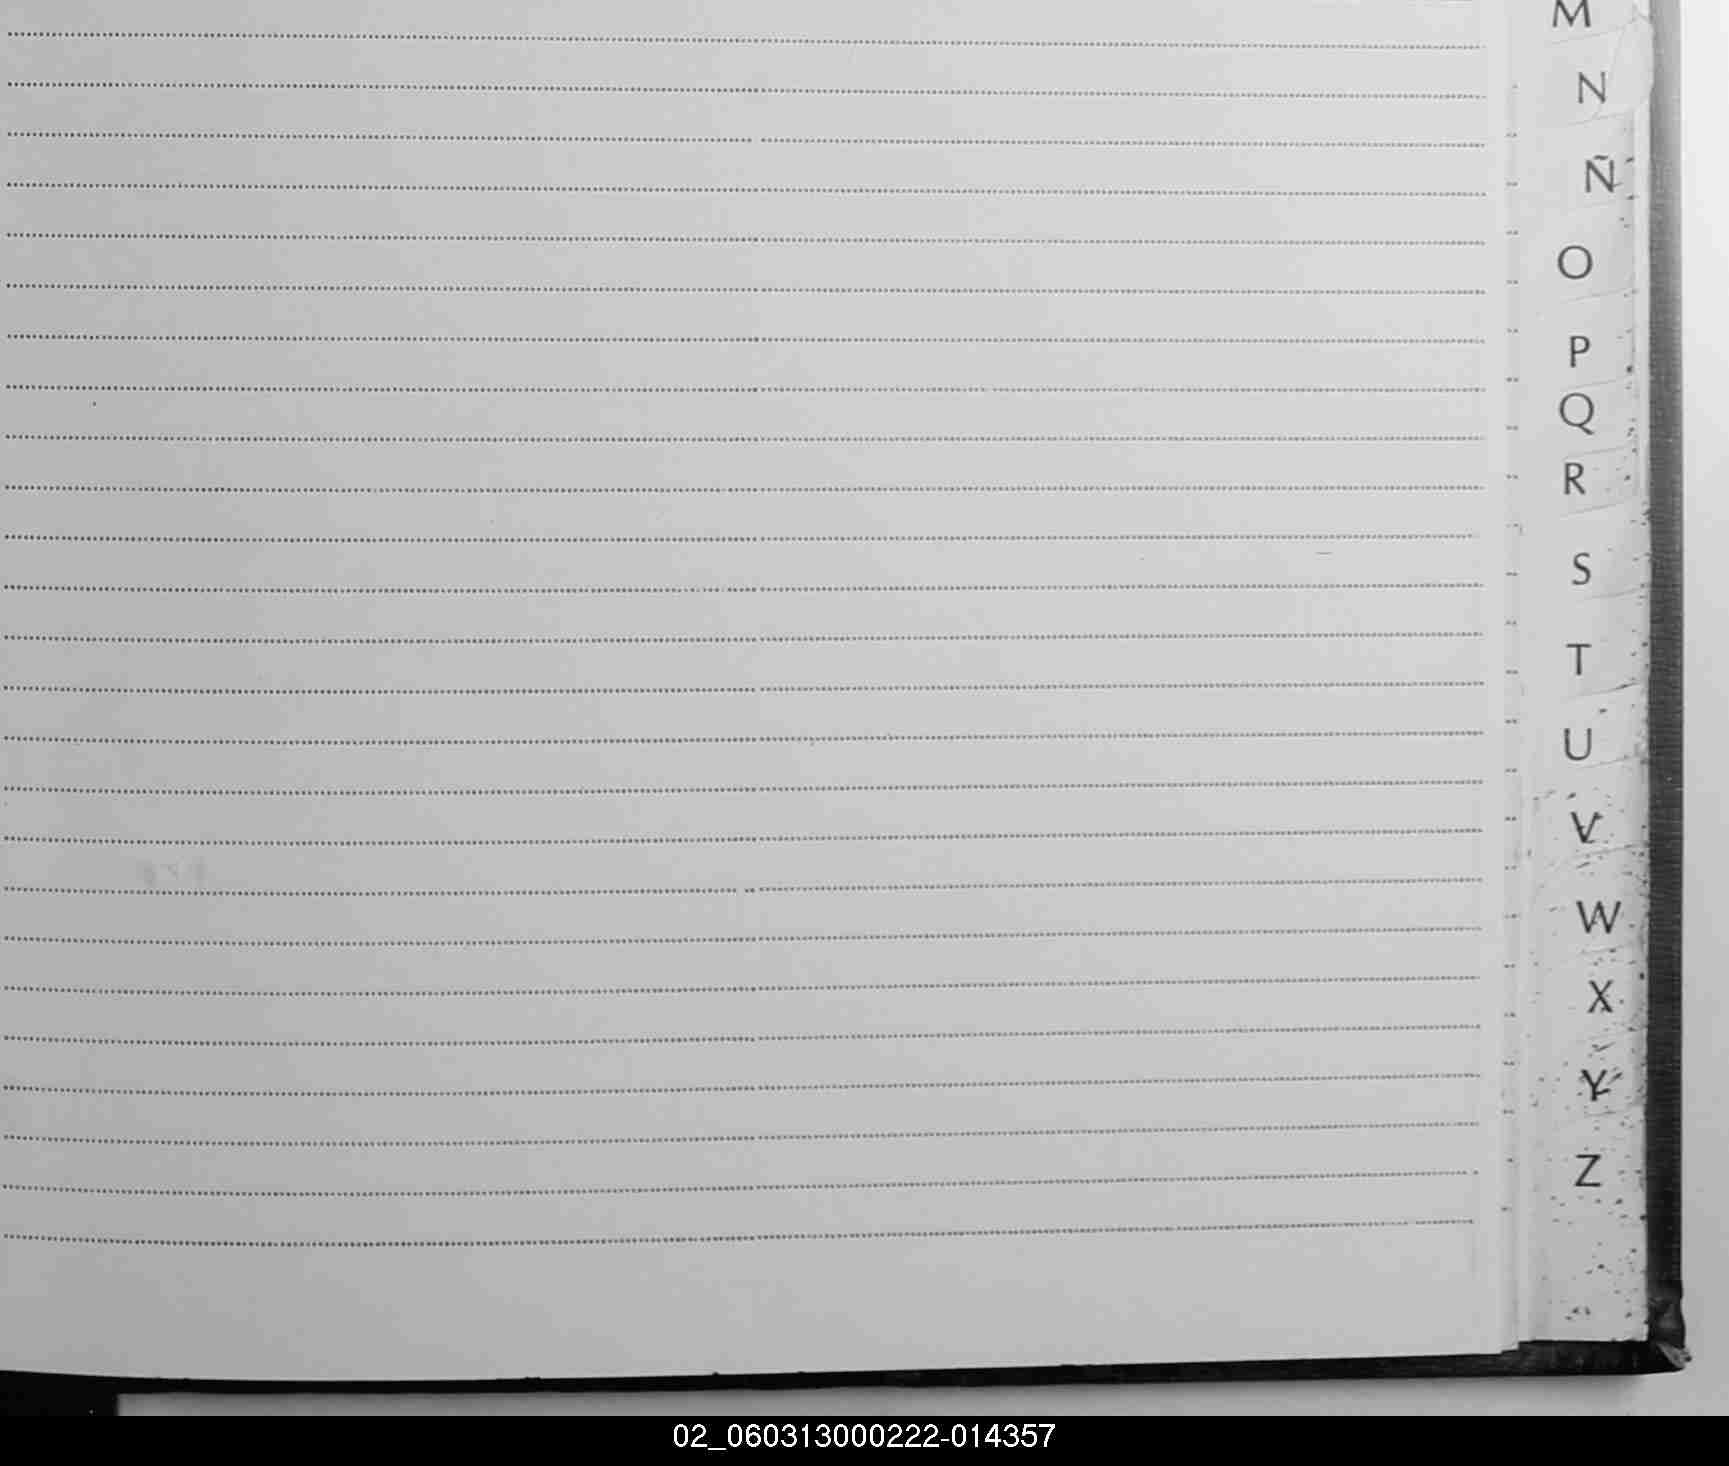 M
N
Ñ
O
P
Q
R
S
T
U
V
W
X
Y
Z
02_060313000222-014357